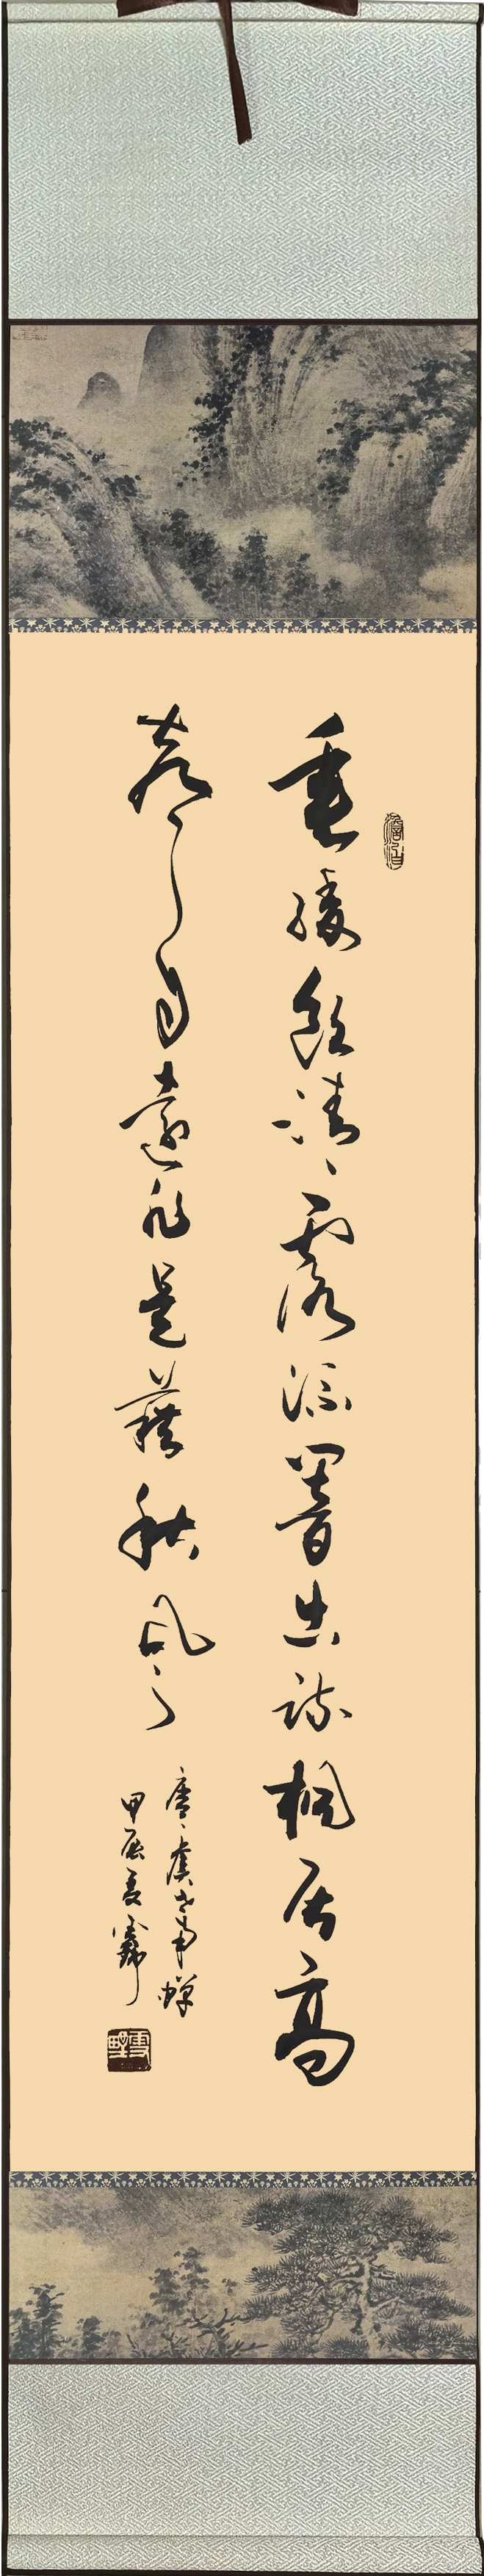 垂緌飲清露流響出疏桐居高
聲自遠非是藉秋風
唐虞世南蟬
甲辰夏
澹泊